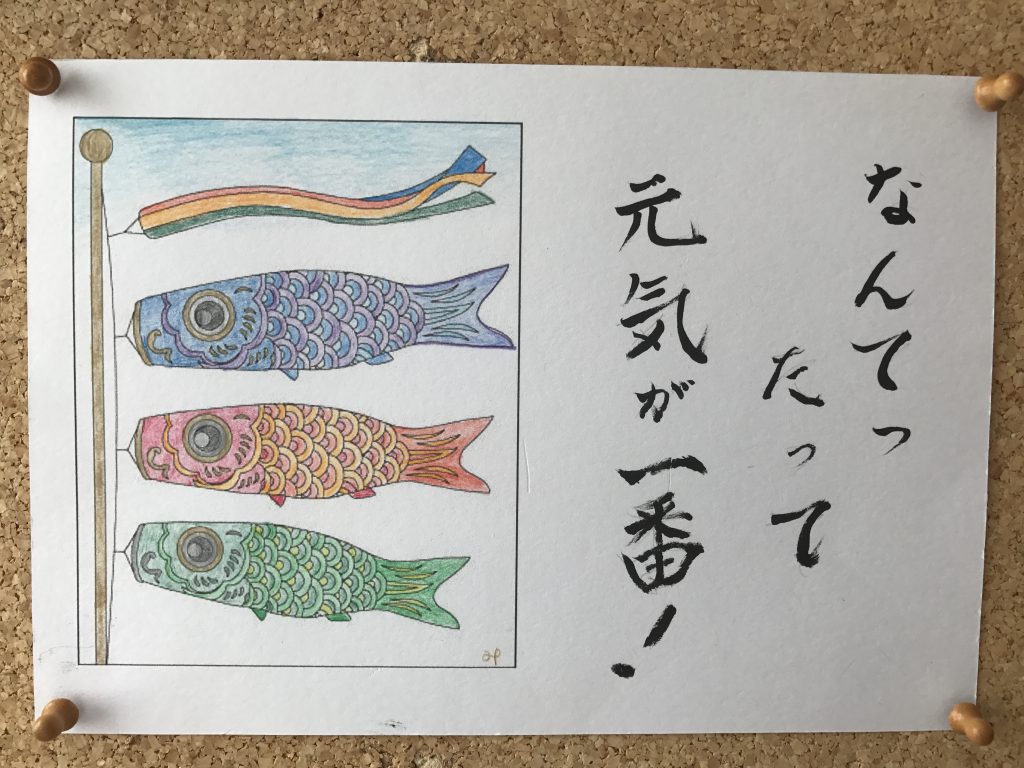 なんてっ
たって
元気が一番!